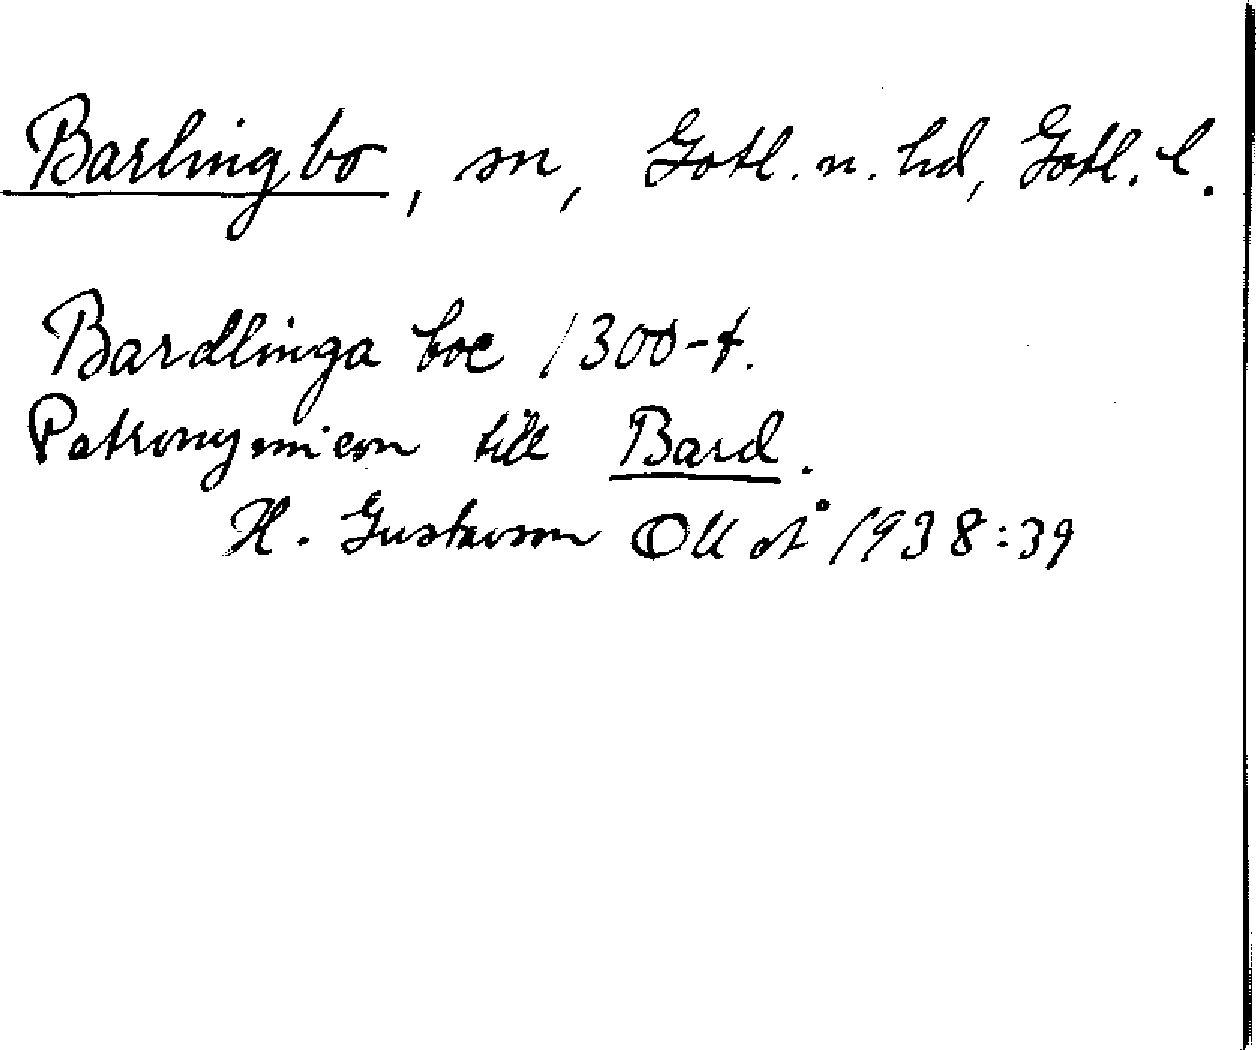 Barlingbo, sn, Gotl. n. hd, Gotl. l.
Bardlinga boe 1300-t.
Patronymicon till Bard.
H. Gustavson OUÅ 1938:39